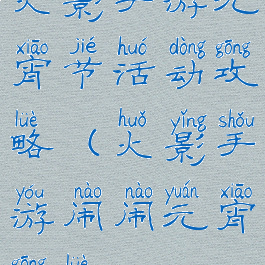 火影手游元
xiāo jié huó dòng gōng
宵节活动攻
lüè huǒ yǐng shǒu
略（火影手
yóu nào nào yuán xiāo
游闹闹元宵
gōng lüè